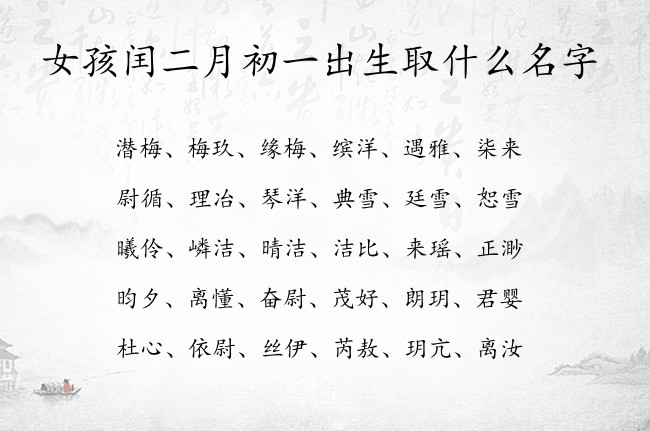 女孩闰二月初一出生取什么名字
潜梅、梅玖、缘梅、缤洋、遇雅、柒来
尉循、理冶、琴洋、典雪、廷雪、恕雪
曦伶、嶙洁、晴洁、洁比、来瑶、正渺
昀夕、离懂、奋尉、茂好、朗玥、君婴
杜心、依尉、丝伊、芮敖、玥亢、离汝